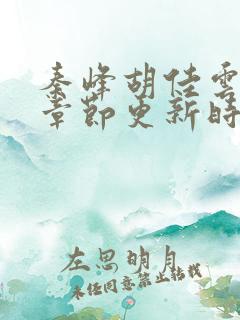 秦峰胡佳雲
章節更新時
左思明月
未经同意禁止转载